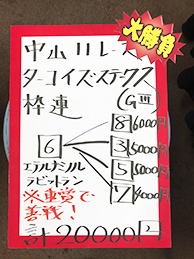 大勝負
中山11レース
ターコイズステークス
枠連 (GⅢ)
8 6000円
6 3 5000円
エテルナミノル 5 5000円
ラビットラン 7 4000円
※車営で
善戦!
計20000円